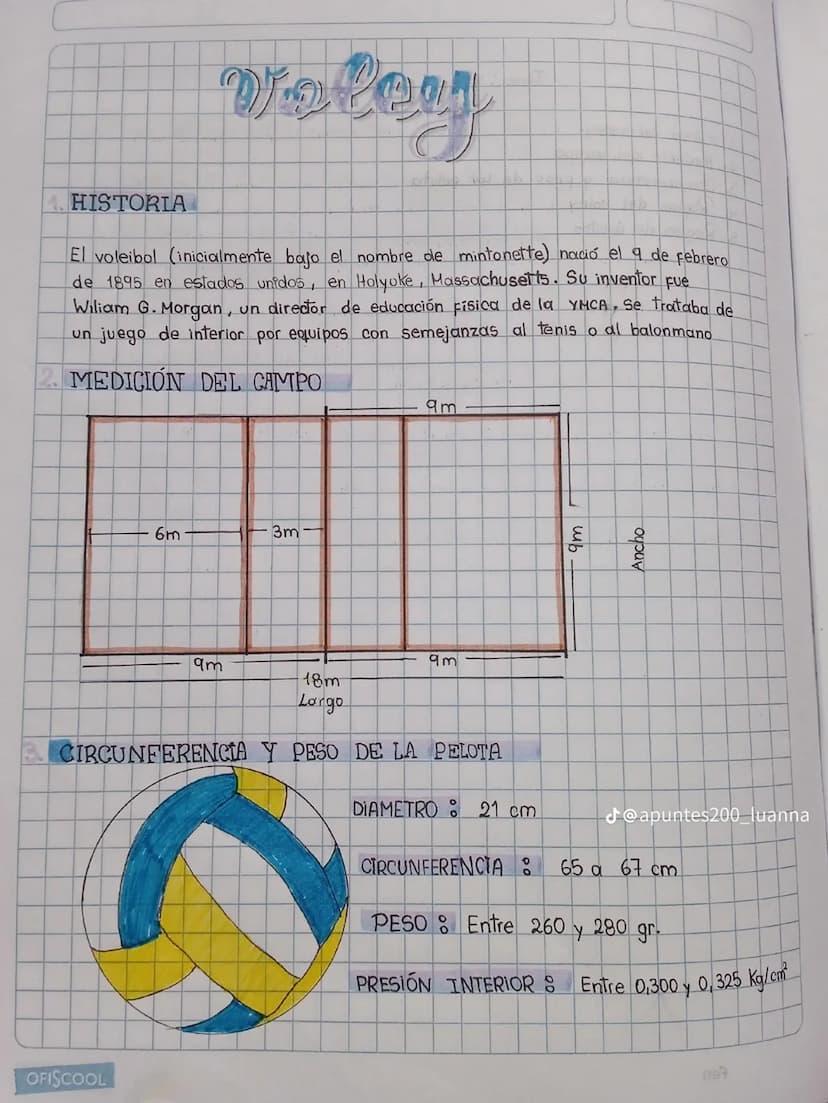 Voley
1. HISTORIA
El voleibol (inicialmente bajo el nombre de mintonette) nació el 9 de febrero
de 1895 en estados unidos, en Holyoke, Massachusetts. Su inventor fue
Wiliam G. Morgan, un director de educación física de la YMCA. Se trataba de
un juego de interior por equipos con semejanzas al tenis o al balonmano
2. MEDICIÓN DEL CAMPO
9m
6m
3m
9m
Ancho
9m
9m
18m
Largo
3. CIRCUNFERENCIA Y PESO DE LA PELOTA
DIAMETRO : 21 cm
@apuntes200_luanna
CIRCUNFERENCIA : 65 a 67 cm
PESO : Entre 260 y 280 gr.
PRESIÓN INTERIOR : Entre 0,300 y 0,325 Kg/cm²
OFISCOOL